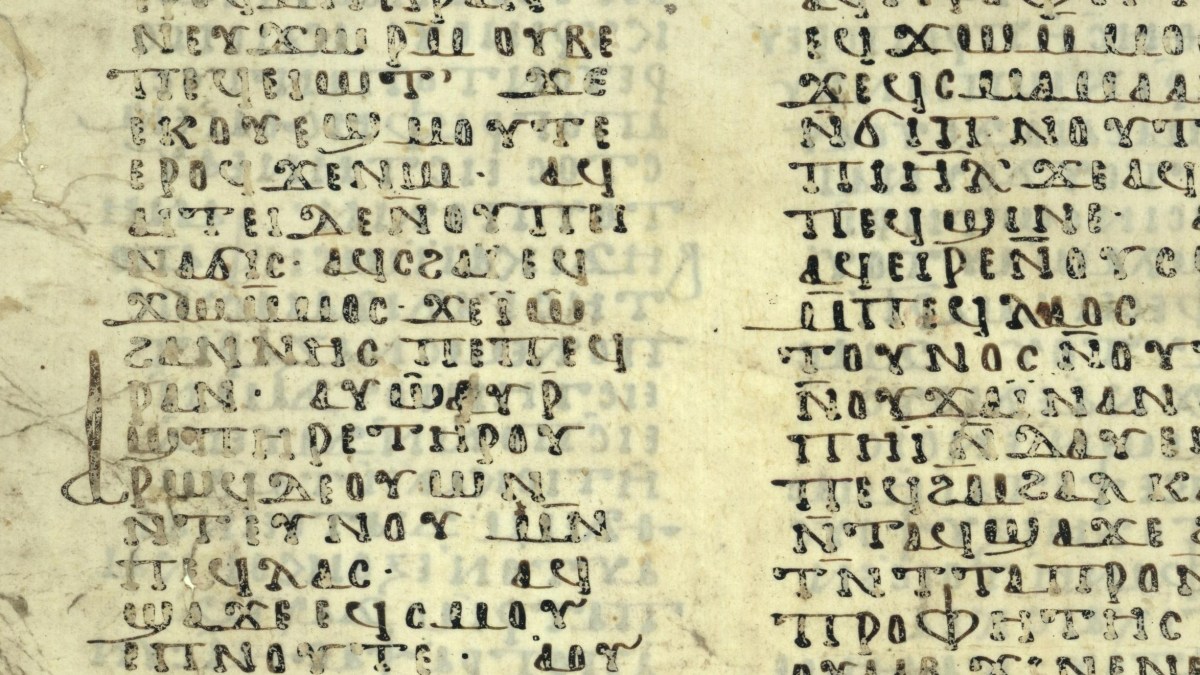 ⲛⲉⲩϫⲱⲣⲙ̄ ⲟⲩⲃⲉ
ⲡⲉϥⲉⲓⲱⲧ' ϫⲉ
ⲉⲕⲟⲩⲉϣⲙⲟⲩⲧⲉ
ⲉⲣⲟϥϫⲉⲛⲓⲙ· ⲁϥ
ⲁⲓⲧⲉⲓⲇⲉⲛ̄ⲟⲩⲡⲉⲓ
ⲛⲁϭⲓⲥ· ⲁϥⲥϩⲁⲓ̈ ⲉϥ
ϫⲱⲙ̄ⲙⲟⲥ· ϫⲉⲓ̈ⲱ̄
ϩⲁⲛⲛⲏⲥ ⲡⲉⲡⲉϥ
ⲣⲁⲛ· ⲁⲩⲱ̄ⲁⲩⲣ̄
ϣⲡⲏⲣⲉⲧⲏⲣⲟⲩ
ⲁⲣⲱϥⲇⲉⲟⲩⲱⲛ
ⲛ̄ⲧⲉⲩⲛⲟⲩ ⲙⲛ̄
ⲡⲉϥⲗⲁⲥ· ⲁϥ
ϣⲁϫⲉ ⲉϥⲥⲙⲟⲩ
ⲉⲡⲛⲟⲩⲧⲉ· ⲁⲟⲩ
ⲉϥϫⲱⲙ̄ⲙⲟ
ϫⲉϥⲥⲙⲁⲙⲁⲁ
ⲛ̄ϭⲓⲡⲛⲟⲩⲧ
ⲡⲓⲏ̄ⲗ ϫⲉⲁϥ
ⲡⲉϥϣⲓⲛⲉ·
ⲁϥⲉⲓⲣⲉⲛ̄ⲟⲩⲥ
ⲙ̄ⲡⲉϥⲗⲁⲟⲥ
ⲧⲟⲩⲛⲟⲥ ⲛ̄ⲟⲩ
ⲛ̄ⲟⲩϫⲁⲓ̈ⲛⲁⲛ
ⲡⲏⲓ̈ⲛ̄ⲇⲁⲩⲉ
ⲡⲉϥϩⲙ̄ϩⲁⲗ
ⲛ̄ⲧⲁϥϣⲁϫⲉ
ⲧⲛ̄ⲧⲧⲁⲡⲣⲟⲛ
ⲡⲣⲟⲫⲏⲧⲏⲥ